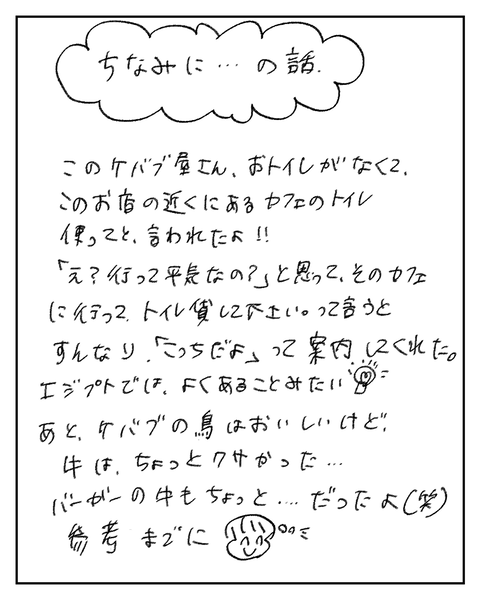 ちなみに…の話.
このケバブ屋さん、おトイレがなくて、
このお店の近くにあるカフェのトイレ
使ってと、言われたよ!!
「え?行って平気なの?」と思って、そのカフェ
に行って、トイレ貸して下さい。って言うと
すんなり、「こっちだよ」って案内してくれた。
エジプトでは、よくあることみたい
あと、ケバブの鳥はおいしいけど、
牛は、ちょっとクサかった…
バーガーの牛もちょっと…だったよ(笑)
参考までに